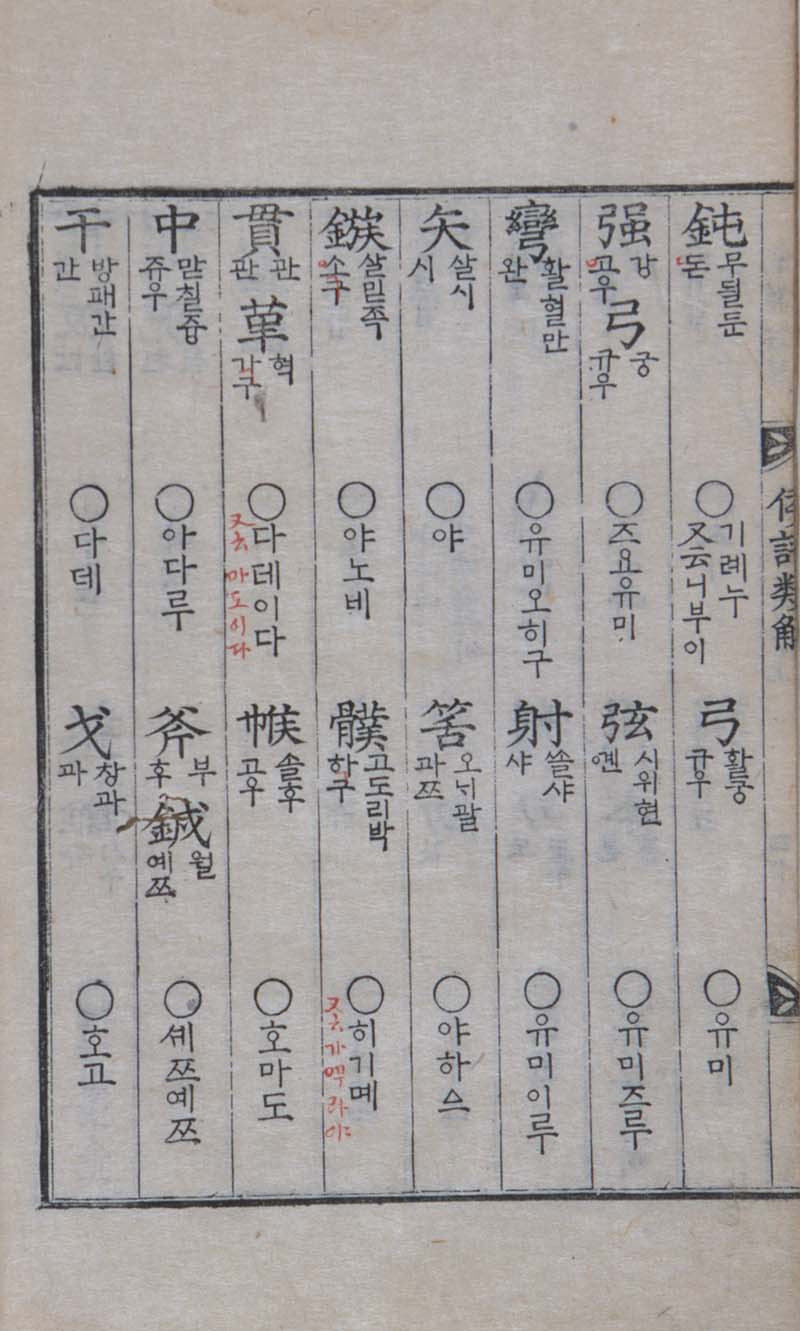 倭語類解
鈍 무딀둔 돈 ○기례누 又云니부이 弓 활궁 규우 ○유미
强 강 고우 弓 궁 규우 ○즈요유미 弦 시위현 옌 ○유미즈루
彎 활혈만 완 ○유미오히구 射 쏠샤 샤 ○유미이루
矢 살시 시 ○야 筈 오늬괄 과쯔 ○야하스
鏃 살밑족 소구 ○야노비 髇 고도리박 하구 ○히기몌 又云가멱라야
貫 관 관 革 혁 가구 ○다데이다 又云마도이다 帿 솔후 고우 ○호마도
中 맏칠즁 쥬우 ○아다루 斧 부 후 鉞 월 예쯔 ○셰쯔예쯔
干 방패간 간 ○다데 戈 창과 과 ○호고